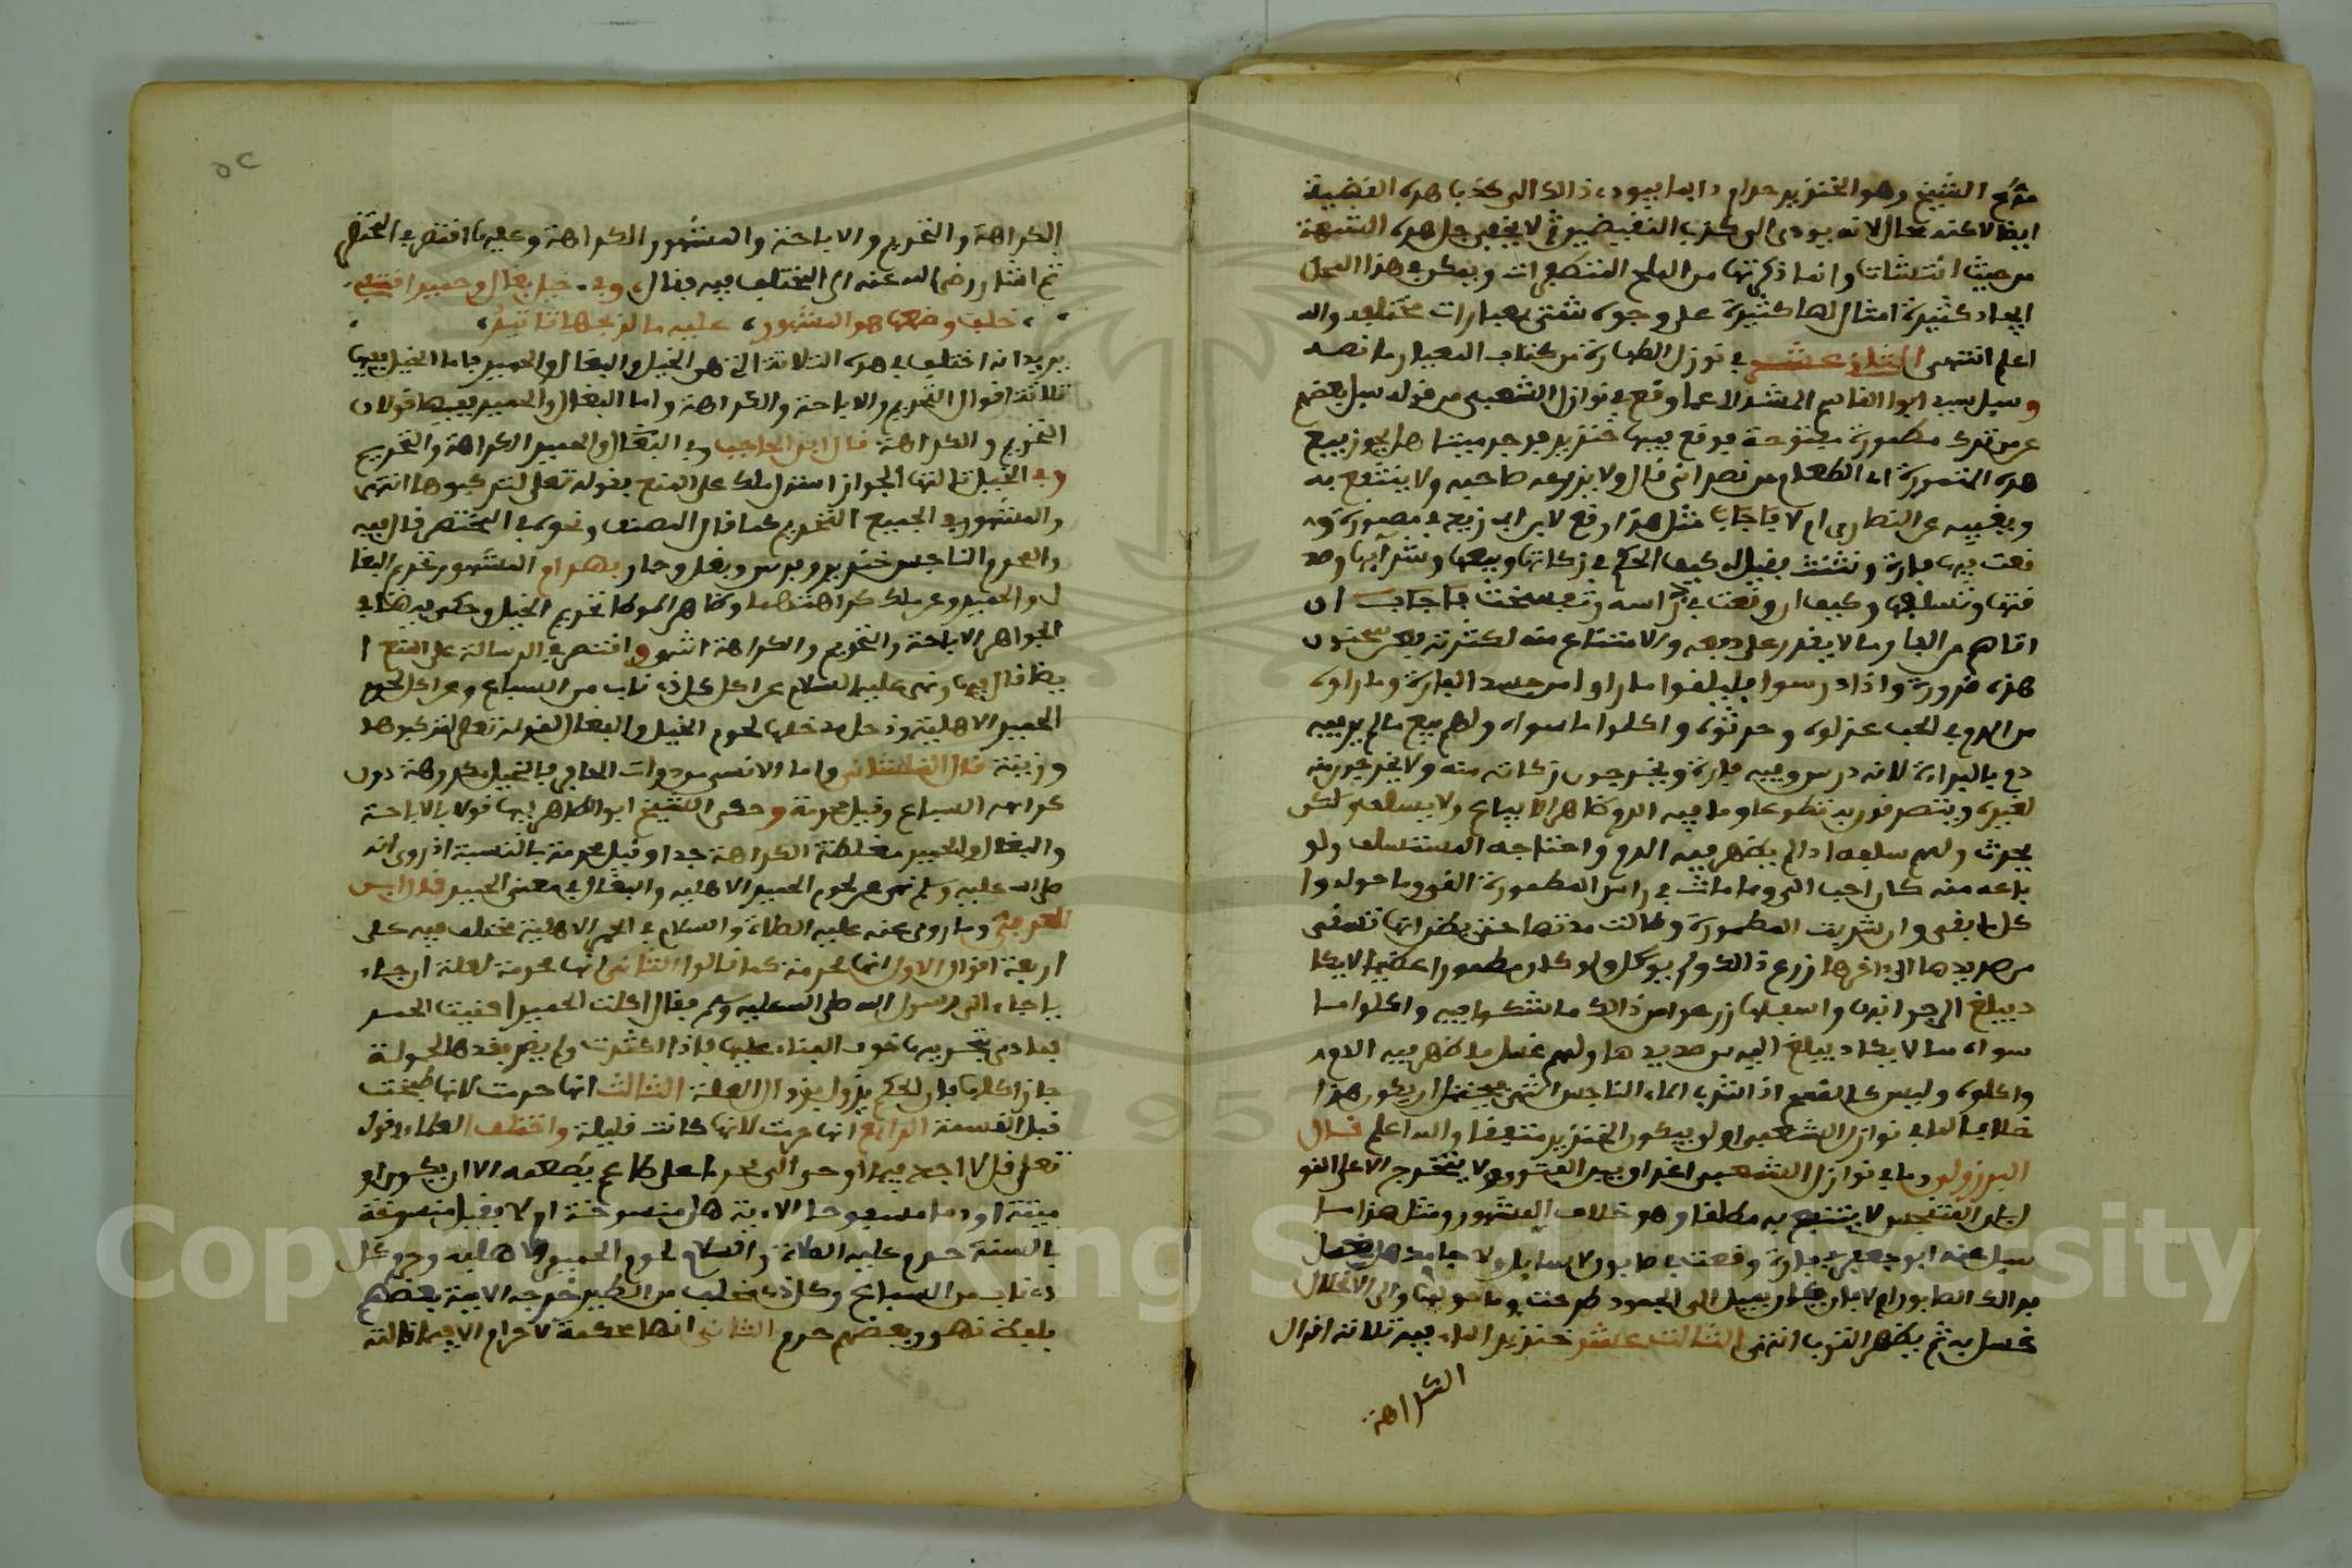 الشيخ وهو الخنزير حرام دايما فيودي ذالك الى كذب هده القضية
ايضا لاكنه محال لانه يودي الى كذب النقيضين لا يخفى حل هده الشبهة
من حيث وانما ذكرتها من الملح ويمكن في هذا المحل
ايجاد كثيرة امثالها كثيرة على وجوه شتى بعبارات مختلفة والله
اعلم انتهى الثاني عشر في نوازل الطهارة من كتاب المعيار ما نصه
وسيل سيدي ابوا القاسم عما وقع في نوازل الشعبي من قوله سيل بعضهم
عمن ترك مطمورة مفتوحة فوقع فيها خنزير فوجد ميتا هل يجوز بيع
هده المطمورة اي الطعام من نصراني قال ولا يزرعه صاحبه ولا ينتفع به
ويغيبه عن النصارى ام لا فاجاب مثل هذا وقع لابن ابي زيد في مطمورة و
قعت فيها فارة فقيل له كيف الحكم في زكاتها وبيعها وشرايها وصد
قتها وسلفها وكيف ان وقعت في راسه فاجاب ان
اتاهم من الفار ما لا يقدر على دفعه والامتناع منه لكثرته فعن سحنون
هذه ضرورة واذا درسوا فليلقوا ما راوا من جسد الفارة وما راوه
من الدم في الحب عزلوه وحرثوه واكلوا ما سواه ولهم بيع ما لم ير فيه
دم بالبراءة لانه درس وفيه فارة ويخرجون زكاته منه ولا يخرجون منه
لغيره ويتصدقون به تطوعا وما فيه الدم ظاهر لا يباع ولا يسلف ولكن
يحرث ولهم سلفه اذا لم يظهر فيه الدم واحتاجه المستسلف ولو
باعه منه كان احب الي وما ماتت في راس المطمورة القي وما حوله وا
كل ما بقي وان شربت المطمورة وطالت مدتها حتى يظن انها تسقي
من صديدها الى اخرها زرع ذالك ولم يوكل ولو كان مطمورا عظيما لا يكا
د يبلغ الى جوانبها واسفلها زرعوا من ذالك ما شكوا فيه واكلوا ما
سواه مما لا يكاد يبلغ اليه من صديدها ولهم غسل ما ظهر فيه الدم
واكلوه وليس كالقمح اذا شرب الماء الناجس انتهى فيحتمل ان يكون هذا
خلافا لما في نوازل الشعبي او لن يكون الخنزير متعفنا والله اعلم قال
البرزولي وما في نوازل الشعبي اغراق في الفتوى ولا يتخرج الا على القو
ل بان المتنجس لا ينتفع به مطلقا وهو خلاف المشهور ومثل هذا ما
سيل عنه ابو جعفر في فارة وقعت في صابون لا سايل ولا جامد هل يحمل
غسل به ثم يطهر الثوب انتهى الثالث عشر خنزير الماء فيه ثلاثة اقوال
الكراهة
٥٢
الكراهة والتحريم والاباحة والمشهور الكراهة وعليها اقتصر في المختصر
ثم اشار رضي الله عنه الى المختلف فيه فقال وفي خيل بغال وحمير
خلف هو المشهور عليه
يريد انه اختلف في هده الثلاثة التي هي الخيل والبغال والحمير فاما الخيل ففيها
ثلاثة اقوال التحريم والاباحة والكراهة واما البغال والحمير ففيها قولان
التحريم والكراهة قال ابن الحاجب وفي البغال والحمير الكراهة والتحريم
وفي الخيل ثالثها الجواز استدل مالك على المنع بقوله تعلى لتركبوها انتهى
والمشهور في الجميع التحريم كما قال المصنف ونحوه في المختصر قال فيه
والمحرم الناجس خنزير وفرس وبغل وحمار بهرام المشهور تحريم البغا
ل والحمير وعن مالك كراهتهما وظاهر الموطا تحريم الخيل وحكى في
الجواهر الاباحة والتحريم والكراهة انتهى واقتصر في الرسالة على المنع ا
يضا قال فيها ونهى عليه السلام عن اكل كل ذي ناب من السباع وعن اكل لحوم
الحمير الاهلية ودخل مدخلها لحوم الخيل والبغال لقوله تعلى لتركبوها
وزينة قال القلشاني واما الانسي من دوات الحافر فالخيل مكروهة دون
كراهة السباع وقيل محرمة وحكى الشيخ ابو الطاهر فيها قولا بالاباحة
والبغال والحمير مغلظة الكراهة جدا وقيل محرمة بالنسبة اذ روي انه
صلى الله عليه وسلم نهى عن لحوم الحمير الاهلية والبغال في معنى الحمير قال ابن
العربي وما روي عنه عليه الصلاة والسلام في الحمر الاهلية مختلف فيه على
اربعة اقوال الاول انها محرمة كما قالوا الثاني انها محرمة لعلة ان جاء
يا جاء الى رسول الله صلى الله عليه وسلم فقال اكلت الحمير افنيت الحمر
فنادى بتحريمها خوف الفناء عليها فاذا كثرت ولم يضر فقدها الحمولة
جاز اكلها فان الحكم يزول بزوال العلة الثالث انها حرمت لانها طبخت
قبل القسمة الرابع انها حرمت لانها كانت قليلة واختلف العلماء في قوله
تعلى قل لا اجد فيما اوحي الي محرما على طاعم يطعمه الا ان يكون
ميتة او دما مسفوحا الاية هل منسوخة ام لا فقيل منسوخة
بالسنة حرم عليه الصلاة والسلام لحوم الحمير الاهلية وحرم كل
ذي ناب من السباع وكل ذي مخلب من الطير خرجه الايمة بعضهم
بلفظ نهى وبعضهم حرم الثاني انها محكمة لا حرام الا فيها قالته